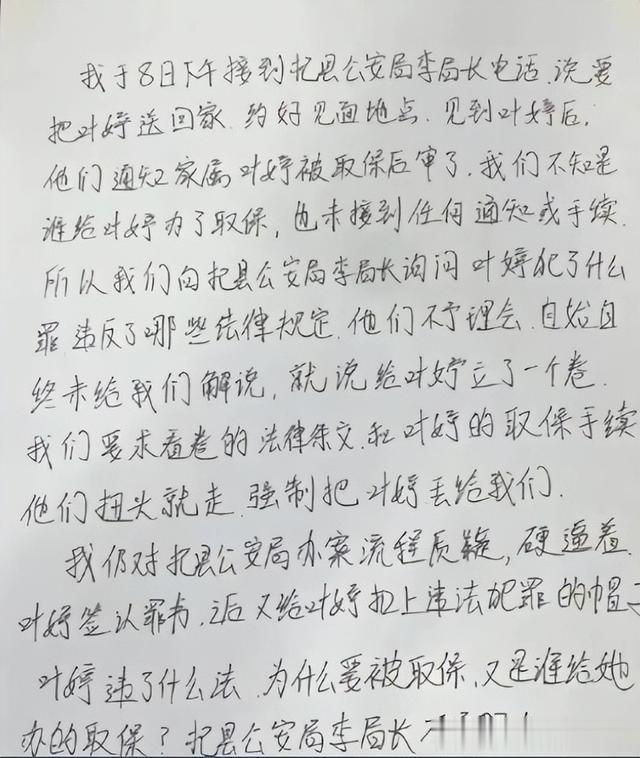 我于8日下午接到杞县公安局李局长电话.说要
把叶婷送回家.约好见面地点.见到叶婷后,
他们通知家属叶婷被取保后审了.我们不知是
谁给叶婷办了取保,也未接到任何通知或手续.
所以我们向杞县公安局李局长询问叶婷犯了什么
罪.违反了哪些法律规定.他们不予理会.自始自
终未给我们解说,就说给叶婷立了一个卷.
我们要求看卷的法律条文.和叶婷的取保手续
他们扭头就走.强制把叶婷丢给我们.
我仍对杞县公安局办案流程质疑,硬逼着
叶婷签认罪书.之后又给叶婷扣上违法犯罪的帽子
叶婷违了什么法.为什么要被取保.又是谁给她
办的取保?杞县公安局李局长